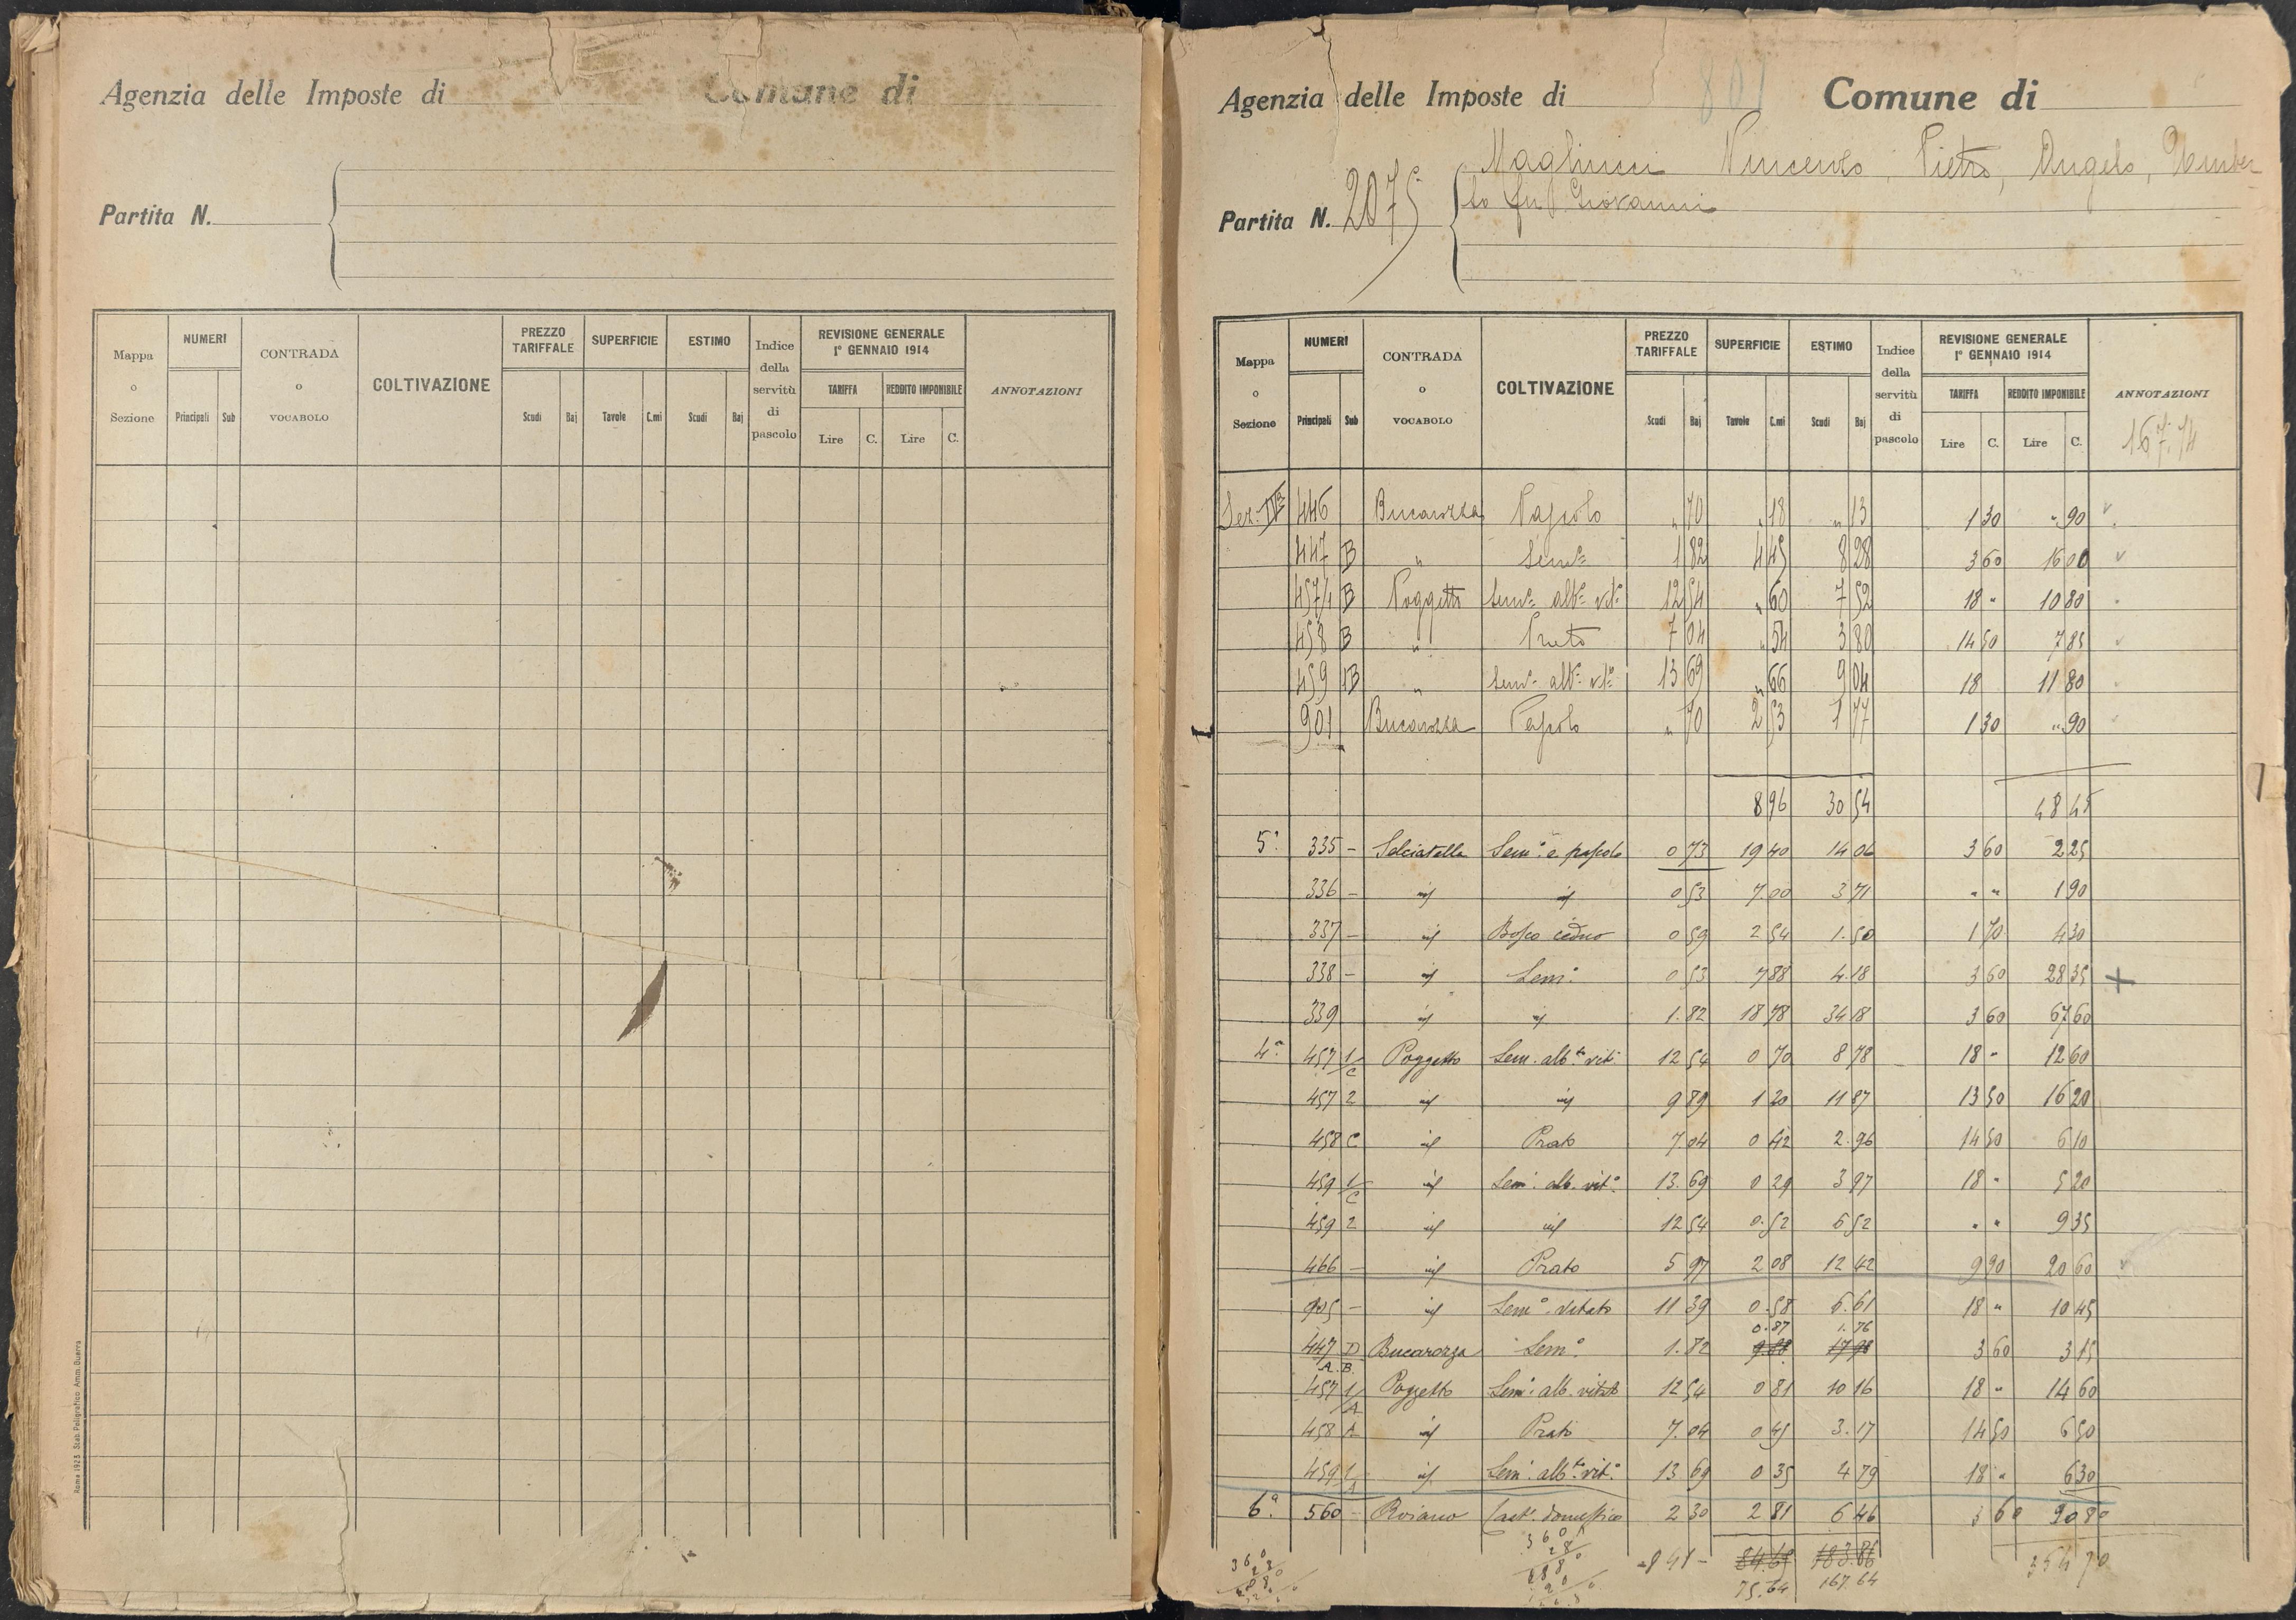 Agenzia delle Imposte di Comune di
Partita N.
Mappa o Sezione
NUMERI
Principali Sub
CONTRADA o VOCABOLO
COLTIVAZIONE
PREZZO TARIFFALE
Scudi Baj
SUPERFICIE
Tavole C.mi
ESTIMO
Scudi Baj
Indice della servitù di pascolo
REVISIONE GENERALE
1° GENNAIO 1914
TARIFFA REDDITO IMPONIBILE
Lire C. Lire C.
ANNOTAZIONI
Roma 1923 Stab. Poligrafico Amm. Guerra
801
Agenzia delle Imposte di Comune di
Magliucci Vincenzo, Pietro, Angelo, Umber-
to fu Giovanni
Partita N. 2075
Mappa o Sezione
NUMERI
Principali Sub
CONTRADA o VOCABOLO
COLTIVAZIONE
PREZZO TARIFFALE
Scudi Baj
SUPERFICIE
Tavole C.mi
ESTIMO
Scudi Baj
Indice della servitù di pascolo
REVISIONE GENERALE
1° GENNAIO 1914
TARIFFA REDDITO IMPONIBILE
Lire C. Lire C.
ANNOTAZIONI
167.14
Sez. 446 Bucarozza Pascolo " 70 " 18 " 13 1 30 " 90
447 B " Sem° 1 82 4 45 8 28 3 60 16 00
457/1 B Poggetto Sem° alb° vit° 12 54 " 60 7 52 18 " 10 80
458 B " Prato 7 04 " 54 3 80 14 50 7 85
459 1B " Sem° alb° vit° 13 69 " 66 9 04 18 11 80
901 Bucarozza Pascolo " 70 2 53 1 77 1 30 " 90
8 96 30 54 48 45
5ª 335 - Selciatella Sem° e pascolo 0 73 19 40 14 06 3 60 2 25
336 - id id 0 53 7.00 3 71 " " 1 90
337 - id Bosco ceduo 0 59 2 54 1.50 1 70 4 30
338 - id Sem° 0 53 7 88 4.18 3 60 28 35 +
339 id id 1.82 18 78 34 18 3 60 67 60
4ª 457 1/C Poggetto Sem. alb.to vit. 12 54 0 70 8 78 18 " 12 60
457 2 id id 9 89 1 20 11 87 13 50 16 20
458 C id Prato 7.04 0 42 2.96 14 50 6 10
459 1/C id Sem° alb. vit° 13.69 0 29 3 97 18 " 5 20
459 2 id id 12 54 0.52 6 52 " " 9 35
466 - id Prato 5 97 2 08 12 42 9 90 20 60
905 - id Sem° vitato 11 39 0.58 6.61 18 " 10 45
0.87 1.76
447 D Bucarozza Sem° 1.82 3 60 3 15
A.B.
457 1/A Poggetto Sem° alb. vitato 12 54 0 81 10 16 18 " 14 60
458 A id Prato 7.04 0 45 3.17 14 50 6 50
459 1/A id Sem° alb.to vit° 13 69 0 35 4 79 18 " 6 30
6ª 560 - Roiano Cast. domestico 2 30 2 81 6 46 3 60 20 80
84.65 183.86
75.64 167.64
354 70